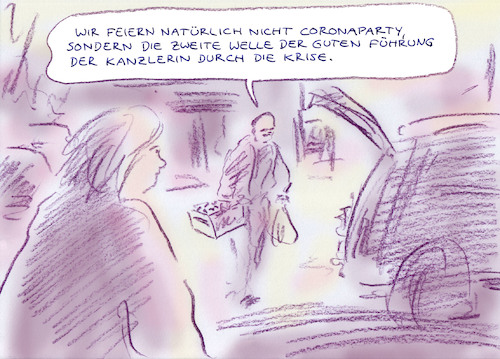 WIR FEIERN NATÜRLICH NICHT CORONAPARTY,
SONDERN DIE ZWEITE WELLE DER GUTEN FÜHRUNG
DER KANZLERIN DURCH DIE KRISE.